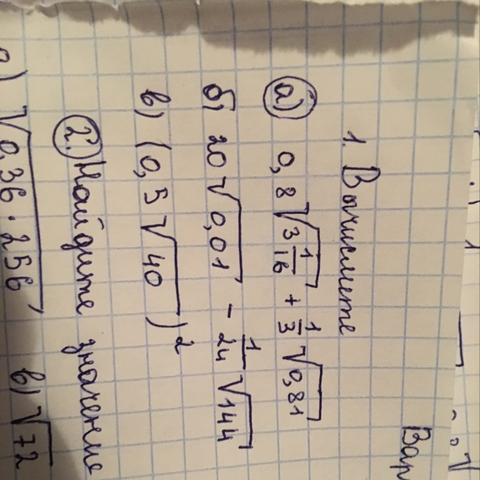 Вар
1. Вычислите
а) 0,8√3 1/16 + 1/3 √0,81
б) 20√0,01 - 1/24 √144
в) (0,5√40)²
2. Найдите значение
а) √0,36·256, в) √72